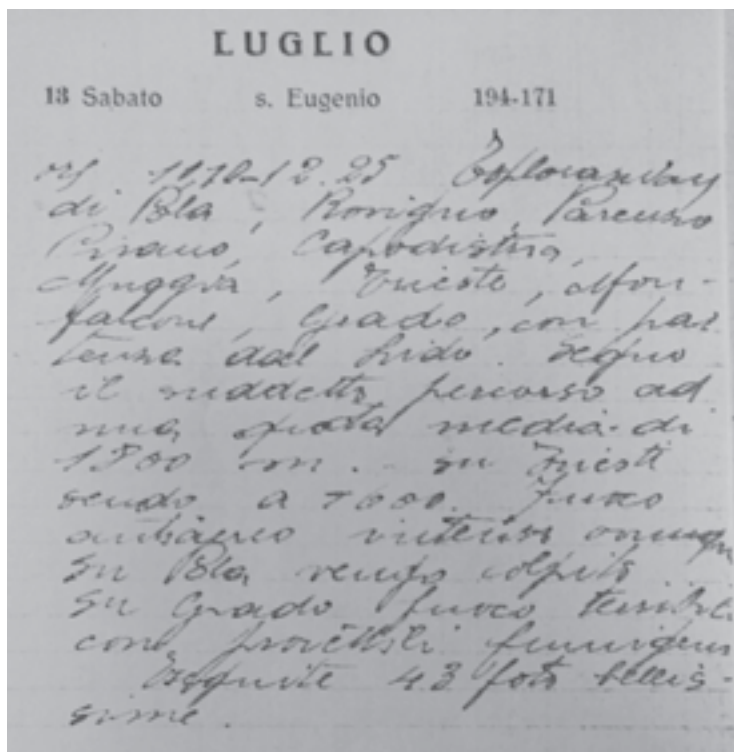 LUGLIO
13 Sabato s. Eugenio 194-171
12.25 Esplorazione
di Pola, Rovigno, Parenzo
Pirano, Capodistria,
Muggia, Trieste, Mon-
falcone, Grado, con par
tenza dal Lido. Seguo
il suddetto percorso ad
una quota media di
m. su Trieste
scendo a Fuoco
antiaereo intenso ovunque
su Pola vengo colpito
su Grado fuoco terribile
con proiettili fumigeni
Eseguite 43 foto bellis-
sime.